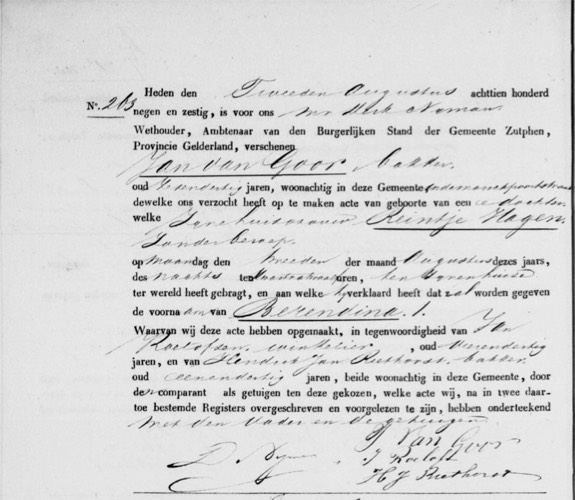 Heden den Tweeden Augustus achttien honderd
N°. 263 negen en zestig, is voor ons Mr Dirk Noman
Wethouder, Ambtenaar van den Burgerlijken Stand der Gemeente Zutphen,
Provincie Gelderland, verschenen
Jan van Goor, bakker,
oud jaren, woonachtig in deze Gemeente
dewelke ons verzocht heeft op te maken acte van geboorte van een e dochter
welke Zyne huisvrouw Reintje Hagen
Zonder beroep.
op Maandag den tweeden der maand Augustus dezes jaars,
des Nachts ten uren, ten Zynen huize
ter wereld heeft gebragt, en aan welke hy verklaard heeft dat zal worden gegeven
de voorna am van Berendina.
Waarvan wij deze acte hebben opgemaakt, in tegenwoordigheid van Jan
Roelofsen, winkelier, oud
jaren, en van Hendrik Jan Riethorst, bakker
oud eenendertig jaren, beide woonachtig in deze Gemeente, door
den comparant als getuigen ten deze gekozen, welke acte wij, na in twee daar-
toe bestemde Registers overgeschreven en voorgelezen te zijn, hebben onderteekend
Met den Vader en de getuigen.
J Van Goor
J Roelofs
H J Riethorst